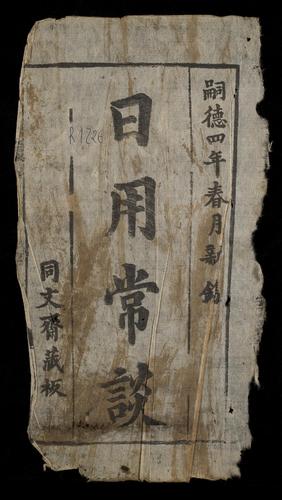 嗣德四年春月新鐫
日用常談
R1726
同文齋藏板